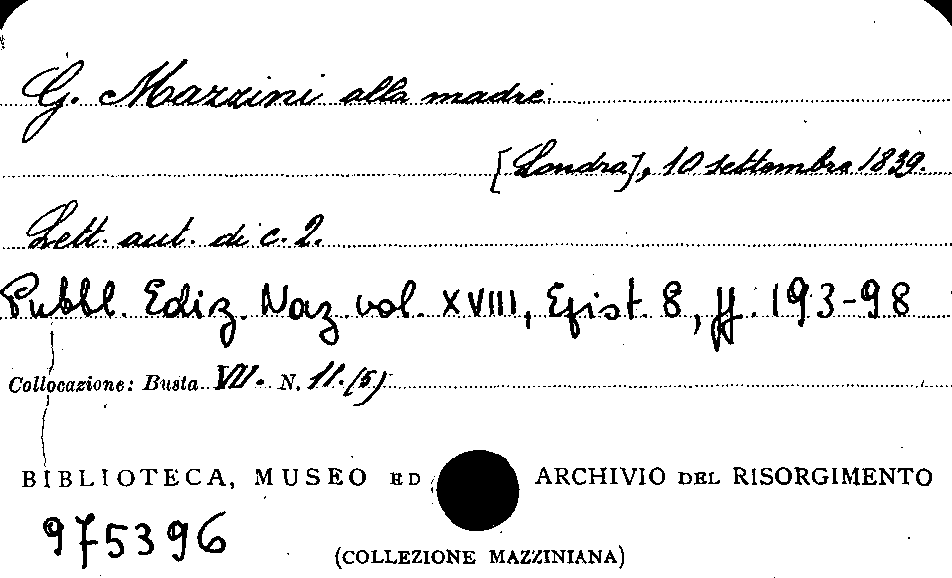 G. Mazzini alla madre.
[Londra], 10 settembre 1839.
Lett. aut. di c. 2.
Pubbl. Ediz. Naz. vol. XVIII, Epist. 8, pp. 193-98
Collocazione: Busta VII. N. 11.(5)
BIBLIOTECA, MUSEO ED ARCHIVIO DEL RISORGIMENTO
975396
(COLLEZIONE MAZZINIANA)